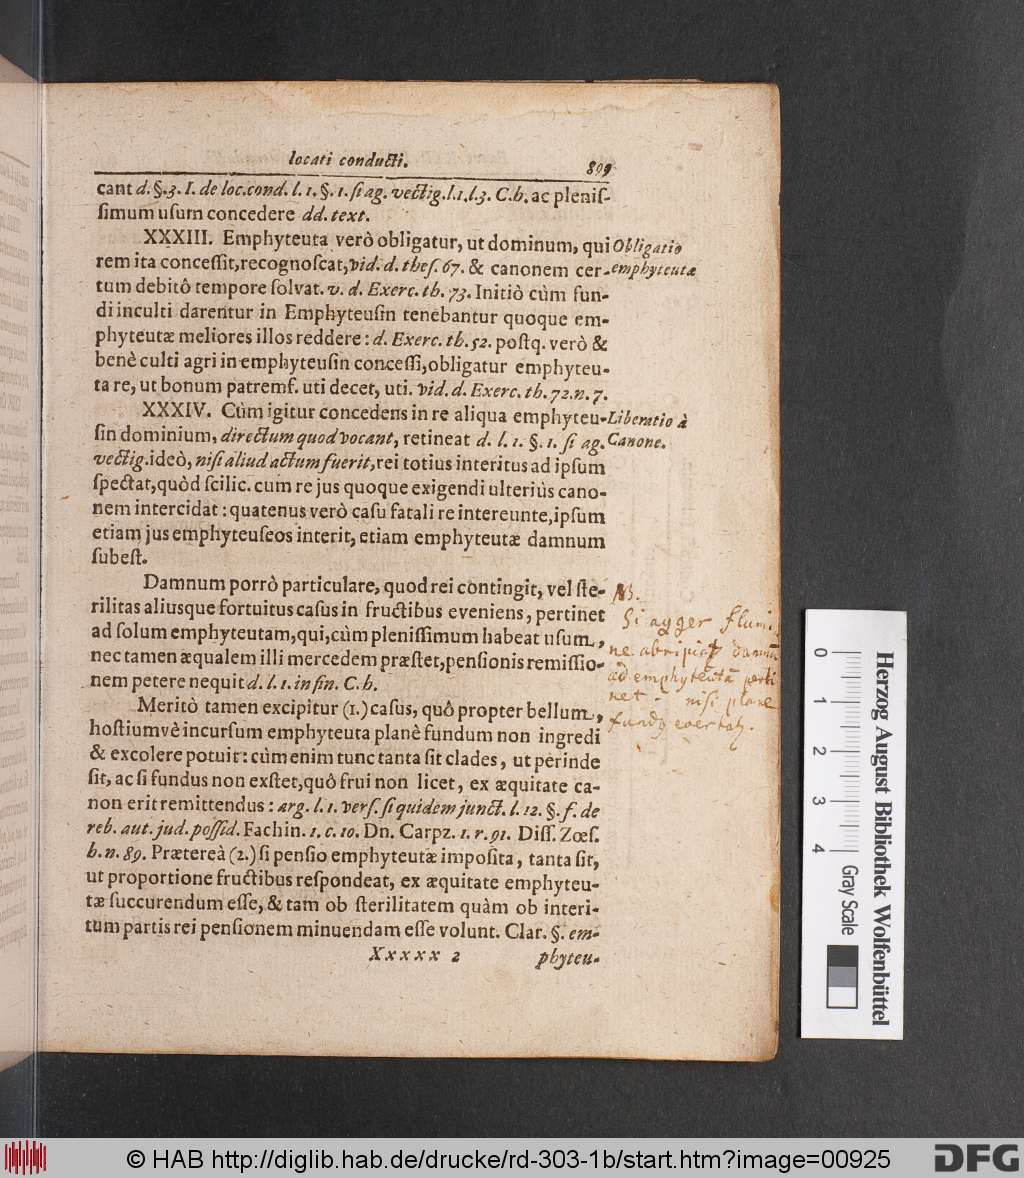 locati conducti. 809
cant d. §. 3. I. de loc. cond. l. 1. §. 1. ſi ag. vectig. l. 1. l. 3. C. h. ac pleniſ-
ſimum uſum concedere dd. text.
XXXIII. Emphyteuta verò obligatur, ut dominum, qui
rem ita conceſſit, recognoſcat, vid. d. theſ. 67. & canonem cer-
tum debitô tempore ſolvat. v. d. Exerc. th. 73. Initiò cùm fun-
di inculti darentur in Emphyteuſin tenebantur quoque em-
phyteutæ meliores illos reddere : d. Exerc. th. 52. poſtq. verò &
benè culti agri in emphyteuſin conceſſi, obligatur emphyteu-
ta re, ut bonum patremf. uti decet, uti. vid. d. Exerc. th. 72. n. 7.
Obligatio
emphyteutæ
XXXIV. Cùm igitur concedens in re aliqua emphyteu-
ſin dominium, directum quod vocant, retineat d. l. 1. §. 1. ſi ag.
vectig. ideò, niſi aliud actum fuerit, rei totius interitus ad ipſum
ſpectat, quòd ſcilic. cum re jus quoque exigendi ulteriùs cano-
nem intercidat : quatenus verò caſu fatali re intereunte, ipſum
etiam jus emphyteuſeos interit, etiam emphyteutæ damnum
ſubeſt.
Liberatio à
Canone.
Damnum porrò particulare, quod rei contingit, vel ſte-
rilitas aliusque fortuitus caſus in fructibus eveniens, pertinet
ad ſolum emphyteutam, qui, cùm pleniſſimum habeat uſum,
nec tamen æqualem illi mercedem præſtet, penſionis remiſſio-
nem petere nequit d. l. 1. in fin. C. h.
NB.
Si agger flumi
ne abripiat damnū
ad emphyteutā perti
net - niſi plane
Meritò tamen excipitur (1.) caſus, quô propter bellum,
hoſtiumvè incurſum emphyteuta planè fundum non ingredi
& excolere potuit : cùm enim tunc tanta ſit clades, ut perinde
ſit, ac ſi fundus non exſtet, quô frui non licet, ex æquitate ca-
non erit remittendus : arg. l. 1. verſ. ſi quidem junct. l. 12. §. f. de
reb. aut. jud. poſſid. Fachin. 1. c. 10. Dn. Carpz. 1. r. 91. Diſſ. Zœſ.
h. n. 89. Prætereà (2.) ſi penſio emphyteutæ impoſita, tanta ſit,
ut proportione fructibus reſpondeat, ex æquitate emphyteu-
tæ ſuccurendum eſſe, & tam ob ſterilitatem quàm ob interi-
tum partis rei penſionem minuendam eſſe volunt. Clar. §. em-
Xxxxx 2 phyteu-
0 1 2 3 4
Gray Scale
Herzog August Bibliothek Wolfenbüttel
© HAB http://diglib.hab.de/drucke/rd-303-1b/start.htm?image=00925
DFG